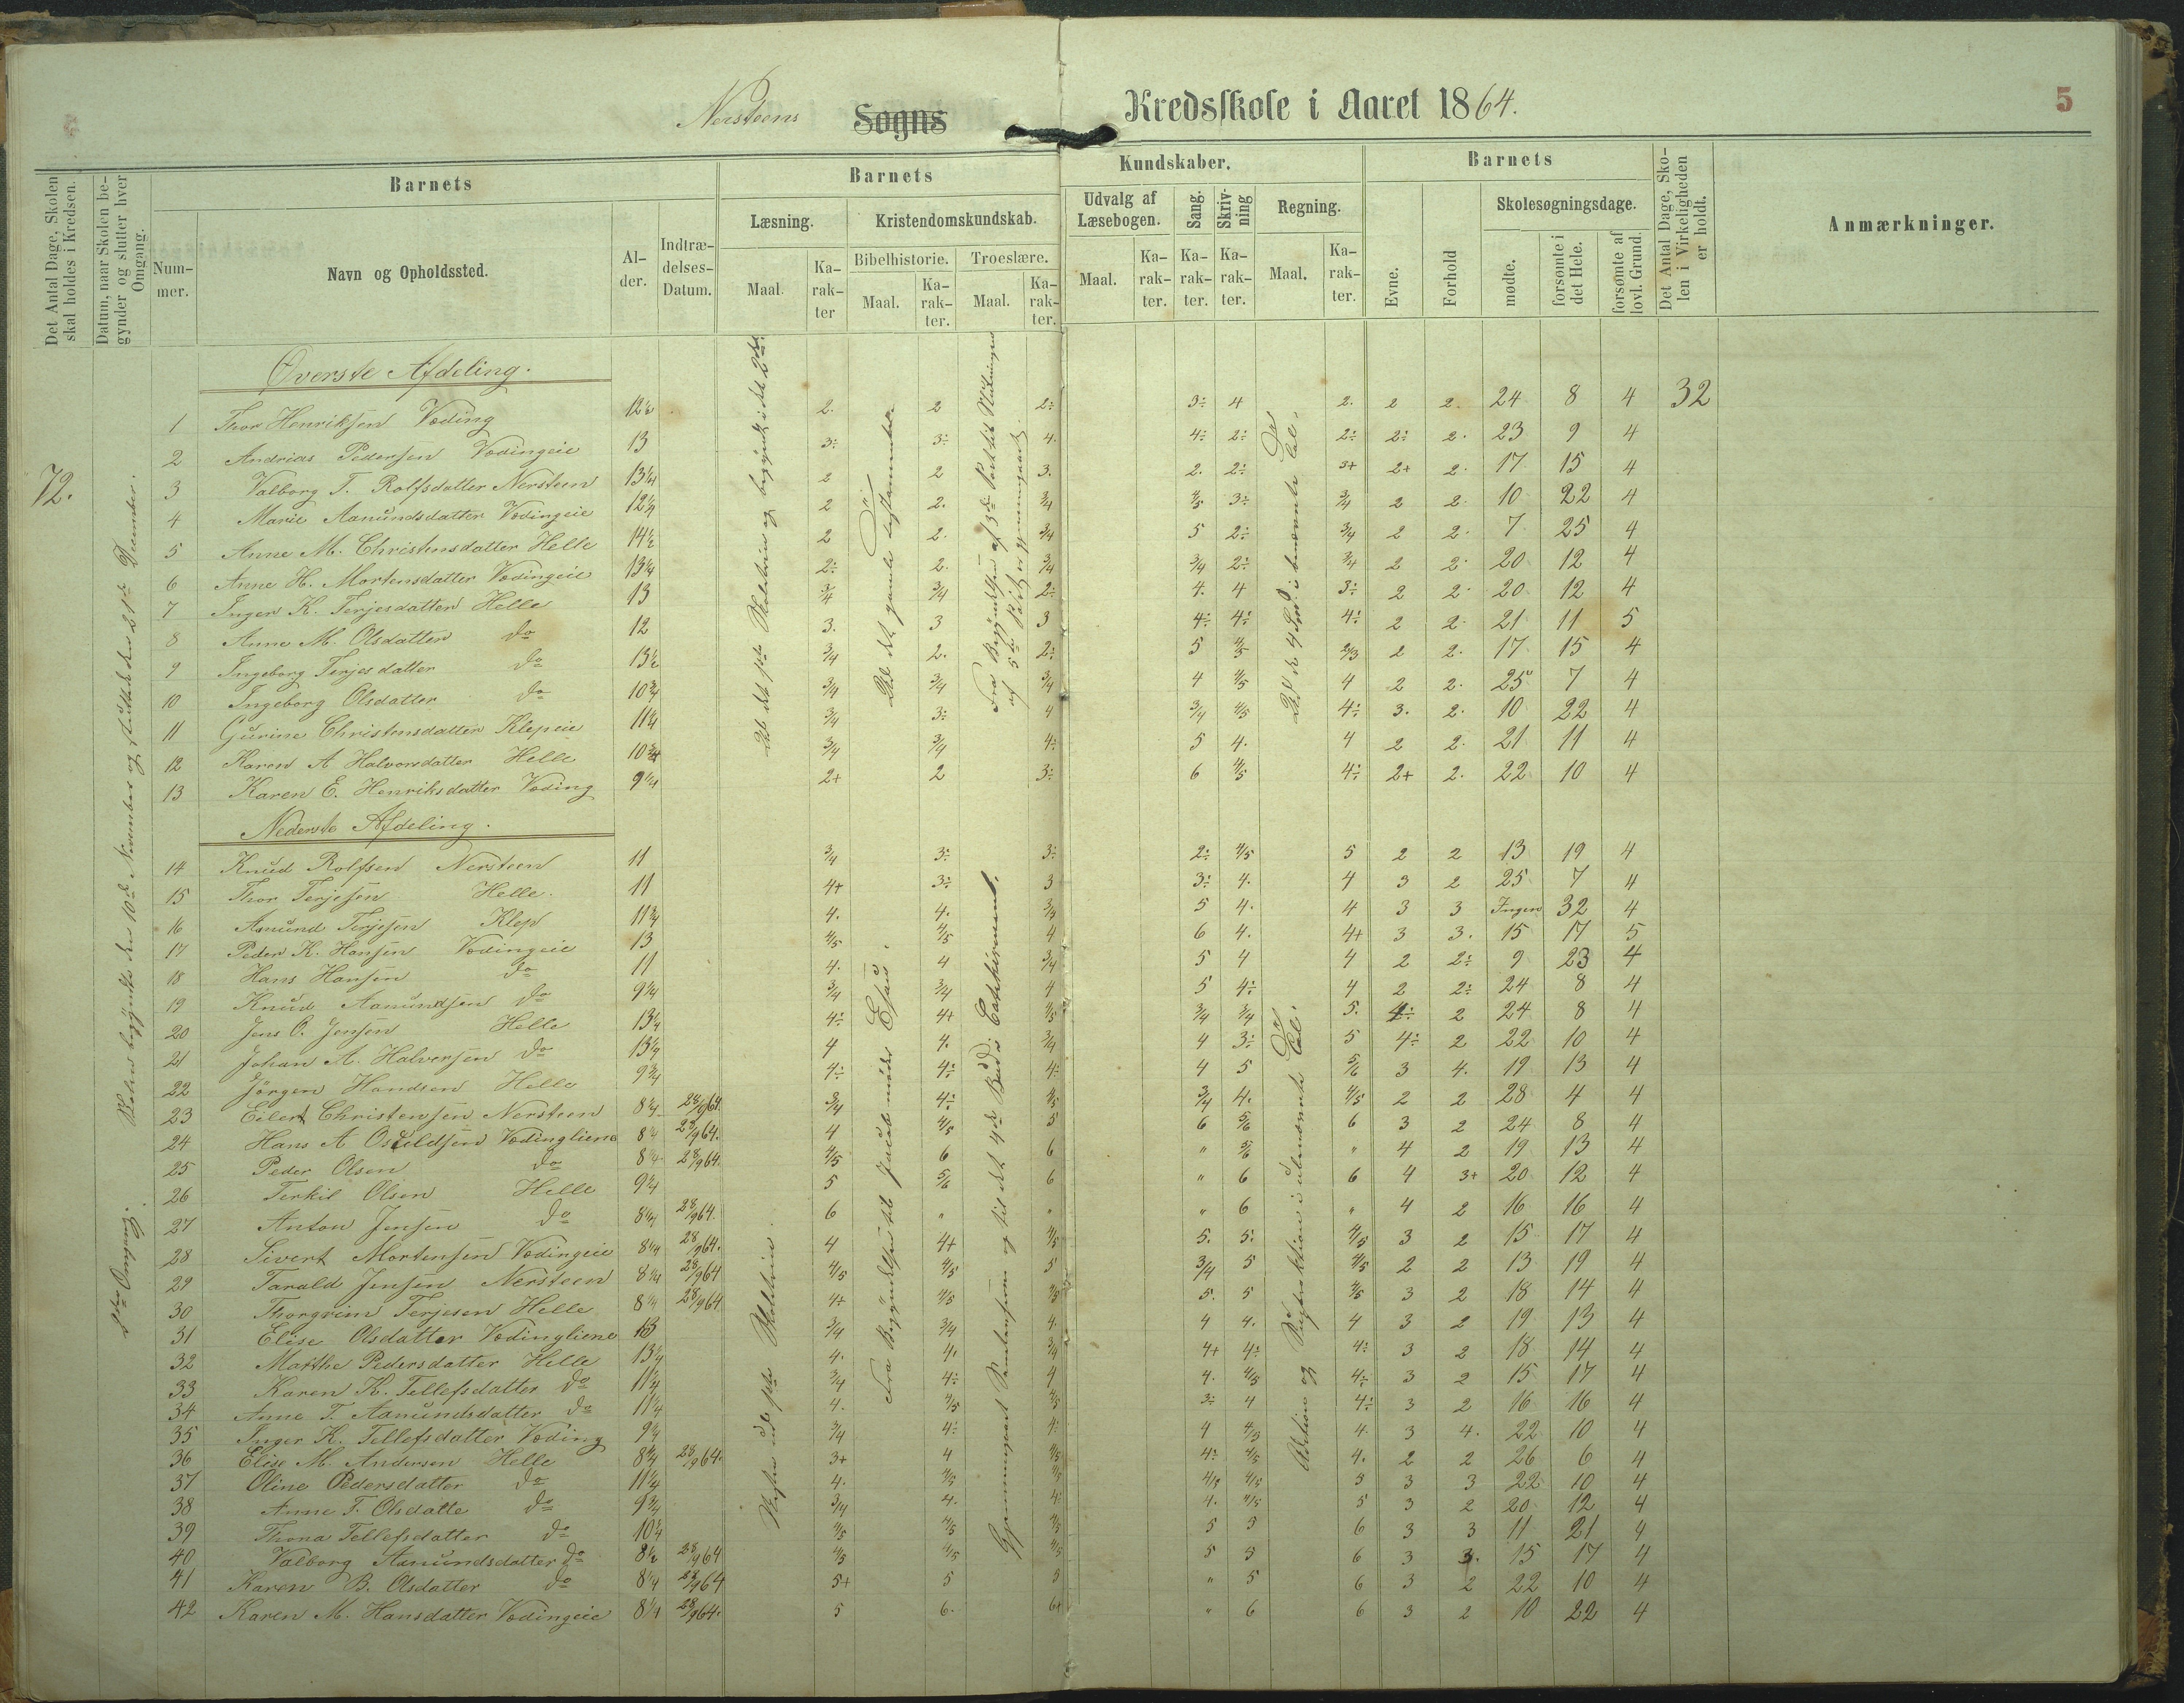 Nersteens Sogns Kredsskole i Aaret 1864. 5
Det Antal Dage, Skolen skal holdes i Kredsen.
Datum, naar Skolen begynder og slutter hver Omgang.
Barnets
Nummer.
Navn og Opholdssted.
Alder.
Indtrædelses-Datum.
Barnets Kundskaber.
Læsning.
Maal.
Karakter
Kristendomskundskab.
Bibelhistorie.
Maal.
Karakter.
Troeslære.
Maal.
Karakter.
Udvalg af Læsebogen.
Maal.
Karakter.
Sang.
Karakter.
Skrivning
Karakter.
Regning.
Maal.
Karakter.
Barnets
Evne.
Forhold
Skolesøgningsdage.
mødte.
forsømte i det Hele.
forsømte af lovl. Grund.
Det Antal Dage, Skolen i Virkeligheden er holdt.
Anmærkninger.
72.
Skolen begyndte den 10de November og sluttede den 21de December.
2den Omgang.
Øverste Afdeling.
1 Thor Henriksen Væding 12½ 2. 2 2÷ 3÷ 4 2. 2 2. 24 8 4 32
2 Andrias Pedersen Vædingeie 13 3÷ 3÷ 4. 4÷ 2÷ 2÷ 2÷ 2. 23 9 4
3 Valborg T. Rolfsdatter Nersteen 13¼ 2 2 3. 2. 2÷ 3+ 2+ 2. 17 15 4
4 Marie Aanundsdatter Vædingeie 12¼ 2 2. 3/4 4/5 3÷ 3/4 2 2. 10 22 4
5 Anne M. Christensdatter Helle 14½ 2 2. 3/4 5 2÷ 3/4 2 2. 7 25 4
6 Anne H. Mortensdatter Vædingeie 13¼ 2÷ 2. 3/4 3/4 2÷ 3/4 2 2. 20 12 4
7 Inger K. Terjesdatter Helle 13 3/4 3/4 2÷ 4. 4 3÷ 2 2. 20 12 4
8 Anne M. Olsdatter do 12 3. 3 3 4÷ 4÷ 4÷ 2 2. 21 11 5
9 Ingeborg Terjesdatter do 13½ 3/4 2. 2÷ 5 4/5 2/3 2 2. 17 15 4
10 Ingeborg Olsdatter do 10¾ 3/4 3/4 3/4 4 4/5 4 2 2. 25 7 4
11 Gurine Christensdatter Klepeie 11¼ 3/4 3÷ 4 3/4 4/5 4÷ 3. 2. 10 22 4
12 Karen A Halvorsdatter Helle 10¾ 3/4 3/4 4÷ 5 4. 4 2 2. 21 11 4
13 Karen E. Henriksdatter Væding 9¼ 2+ 2 3÷ 6 4/5 4÷ 2+ 2. 22 10 4
Nederste Afdeling.
14 Knud Rolfsen Nersteen 11 3/4 3÷ 3÷ 2÷ 4/5 5 2 2 13 19 4
15 Thor Terjesen Helle. 11 4+ 3÷ 3 3÷ 4. 4 3 2 25 7 4
16 Aanund Terjesen Klep 11¾ 4. 4. 3/4 5 4. 4 3 3 Ingen 32 4
17 Peder K. Hansen Vædingeie 13 4/5 4/5 4 6 4. 4+ 3 3. 15 17 5
18 Hans Hansen do 11 4. 4 3/4 5 4 4 2 2÷ 9 23 4
19 Knud Aanundsen do 9¼ 3/4 3/4 4 5 4÷ 4 2 2÷ 24 8 4
20 Jens O. Jensen Helle 13¼ 4÷ 4+ 4/5 3/4 3/4 5. 4÷ 2 24 8 4
21 Johan A. Halversen do 13¼ 4 4. 3/4 4 3÷ 5 4÷ 2 22 10 4
22 Jörgen Handsen Helle 9¾ 4÷ 4÷ 4÷ 4 5 5/6 3 4. 19 13 4
23 Eilert Christensen Nersteen 8¼ 28/9 64. 3/4 4÷ 4/5 3/4 4. 4/5 2 2 28 4 4
24 Hans A Osuldsen Vædingliene 8¼ 28/9 64. 4 4/5 5 6 5/6 6 3 2 24 8 4
25 Peder Olsen do 8¼ 28/9 64. 4/5 6 6 " 5/6 " 4 2 19 13 4
26 Terkil Olsen Helle 9¼ 5 5/6 6 " 6 6 4 3+ 20 12 4
27 Anton Jensen do 8¼ 28/9 64. 6 " " " 6 " 4 2 16 16 4
28 Sivert Mortensen Vædingeie 8¼ 28/9 64. 4 4+ 4/5 5. 5. 4/5 3 2 15 17 4
29 Tarald Jensen Nersteen 8¼ 28/9 64 4/5 4/5 5 3/4 5 4/5 2 2 13 19 4
30 Thorgrim Terjesen Helle 8¼ 28/9 64 4+ 4/5 4/5 5. 5 4/5 3 2 18 14 4
31 Elise Olsdatter Vædingliene 13 3/4 3/4 4. 4 4. 4 3 2 19 13 4
32 Matthe Pedersdatter Helle 13¼ 4. 4. 3/4 4+ 4÷ 4÷ 3 2 18 14 4
33 Karen K. Tellefsdatter do 11¼ 3/4 4÷ 4 4. 4/5 4÷ 3 2 15 17 4
34 Anne T. Aanundsdatter do 11¼ 4. 4/5 4/5 3÷ 4 4÷ 3 2 16 16 4
35 Inger K. Tellefsdatter Væding 9¼ 3/4 4÷ 4÷ 4 4/5 4. 3 4. 22 10 4
36 Elise M. Andersen Helle 8¾ 28/9 64. 3+ 4 4/5 4÷ 4/5 4. 2 2 26 6 4
37 Oline Pedersdatter do 11¼ 4. 4/5 4/5 4/5 4/5 5 3 3 22 10 4
38 Anne T. Olsdatte do 9¾ 3/4 4. 4÷ 4. 4/5 5 3 2 20 12 4
39 Thona Tellefsdatter do 10¼ 4/5 4/5 4/5 5 5 6 3 3 11 21 4
40 Valborg Aanundsdatter do 8½ 28/9 64 4/5 4/5 4/5 5 5 6 3 3. 15 17 4
41 Karen B. Olsdatter do 8¼ 28/9 64 5+ 5 5 " 5 6 3 2 22 10 4
42 Karen M. Hansdatter Vædingeie 8¼ 28/9 64. 5 6. 6+ " 6 6 3 2 10 22 4